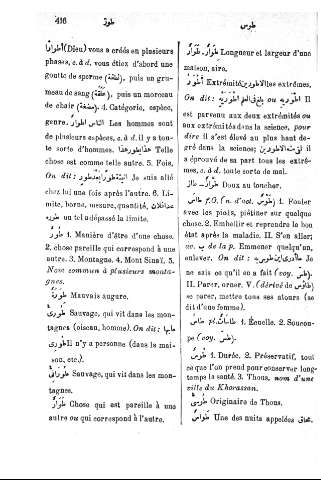 416
طور
طوس
أَطْوَارًا (Dieu) vous a créés en plusieurs
phases, c. à d. vous étiez d'abord une
goutte de sperme (نطفة), puis un gru-
meau de sang (علقة), puis un morceau
de chair (مضغة). 4. Catégorie, espèce,
genre. الناس اطوار Les hommes sont
de plusieurs espèces, c. à d. il y a tou-
te sorte d'hommes. Telle
chose est comme telle autre. 5. Fois.
On dit : Je suis allé
chez lui une fois après l'autre. 6. Li-
mite, borne, mesure, quantité.
طوره un tel a dépassé la limite.
طور 1. Manière d'être d'une chose.
2. chose pareille qui correspond à une
autre. 3. Montagne. 4. Mont Sinaï. 5.
Nom commun à plusieurs monta-
gnes.
طورة Mauvais augure.
Sauvage, qui vit dans les mon-
tagnes (oiseau, homme). On dit : ما بها
طوري Il n'y a personne (dans la mai-
son, etc.).
طوراني Sauvage, qui vit dans les mon-
tagnes.
طوار Chose qui est pareille à une
autre ou qui correspond à une autre.
طوار Longueur et largeur d'une
maison, aire.
أطور Extrémité. الاطورين les extrêmes.
On dit : بلغ في العلم أطوريه ou Il
est parvenu aux deux extrémités ou
aux extrémités dans la science, pour
dire il s'est élevé au plus haut de-
gré dans la science; لقي منه الاطورين il
a éprouvé de sa part tous les extrê-
mes, c. à d. toute sorte de mal.
Doux au toucher.
طاس f. O. (n. d'act. طوس) 1. Fouler
avec les pieds, piétiner sur quelque
chose. 2. Embellir et reprendre le bon
état après la maladie. II. S'en aller;
ac. ب de la p. Emmener quelqu'un,
enlever. On dit : Je
ne sais ce qu'il en a fait (voy. طس).
II. Parer, orner. V. (dérivé de طاوس)
se parer, mettre tous ses atours (se
dit d'une femme).
طاس pl. طاسات 1. Écuelle. 2. Soucou-
pe (voy. طس).
طوس 1. Durée. 2. Préservatif, tout
ce que l'on prend pour conserver long-
temps la santé. 3. Thous, nom d'une
ville du Khorassan.
طوسي Originaire de Thous.
طواس Une des nuits appelées محاق.